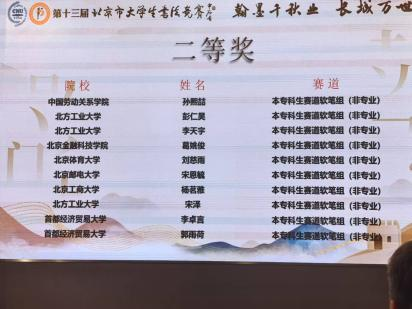 第十三届北京市大学生书法竞赛 翰墨千秋业 长城万世
二等奖
院校 姓名 赛道
中国劳动关系学院 孙熙喆 本专科生赛道软笔组（非专业）
北方工业大学 彭仁昊 本专科生赛道软笔组（非专业）
北方工业大学 李天宇 本专科生赛道软笔组（非专业）
北京金融科技学院 葛姚俊 本专科生赛道软笔组（非专业）
北京体育大学 刘慈雨 本专科生赛道软笔组（非专业）
北京邮电大学 宋恩毓 本专科生赛道软笔组（非专业）
北京工商大学 杨茗雅 本专科生赛道软笔组（非专业）
北方工业大学 宋泽 本专科生赛道软笔组（非专业）
首都经济贸易大学 李卓言 本专科生赛道软笔组（非专业）
首都经济贸易大学 郭雨荷 本专科生赛道软笔组（非专业）